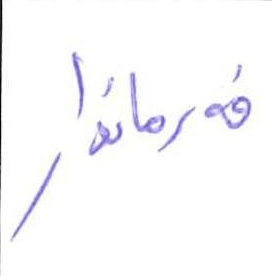 فەرماندار